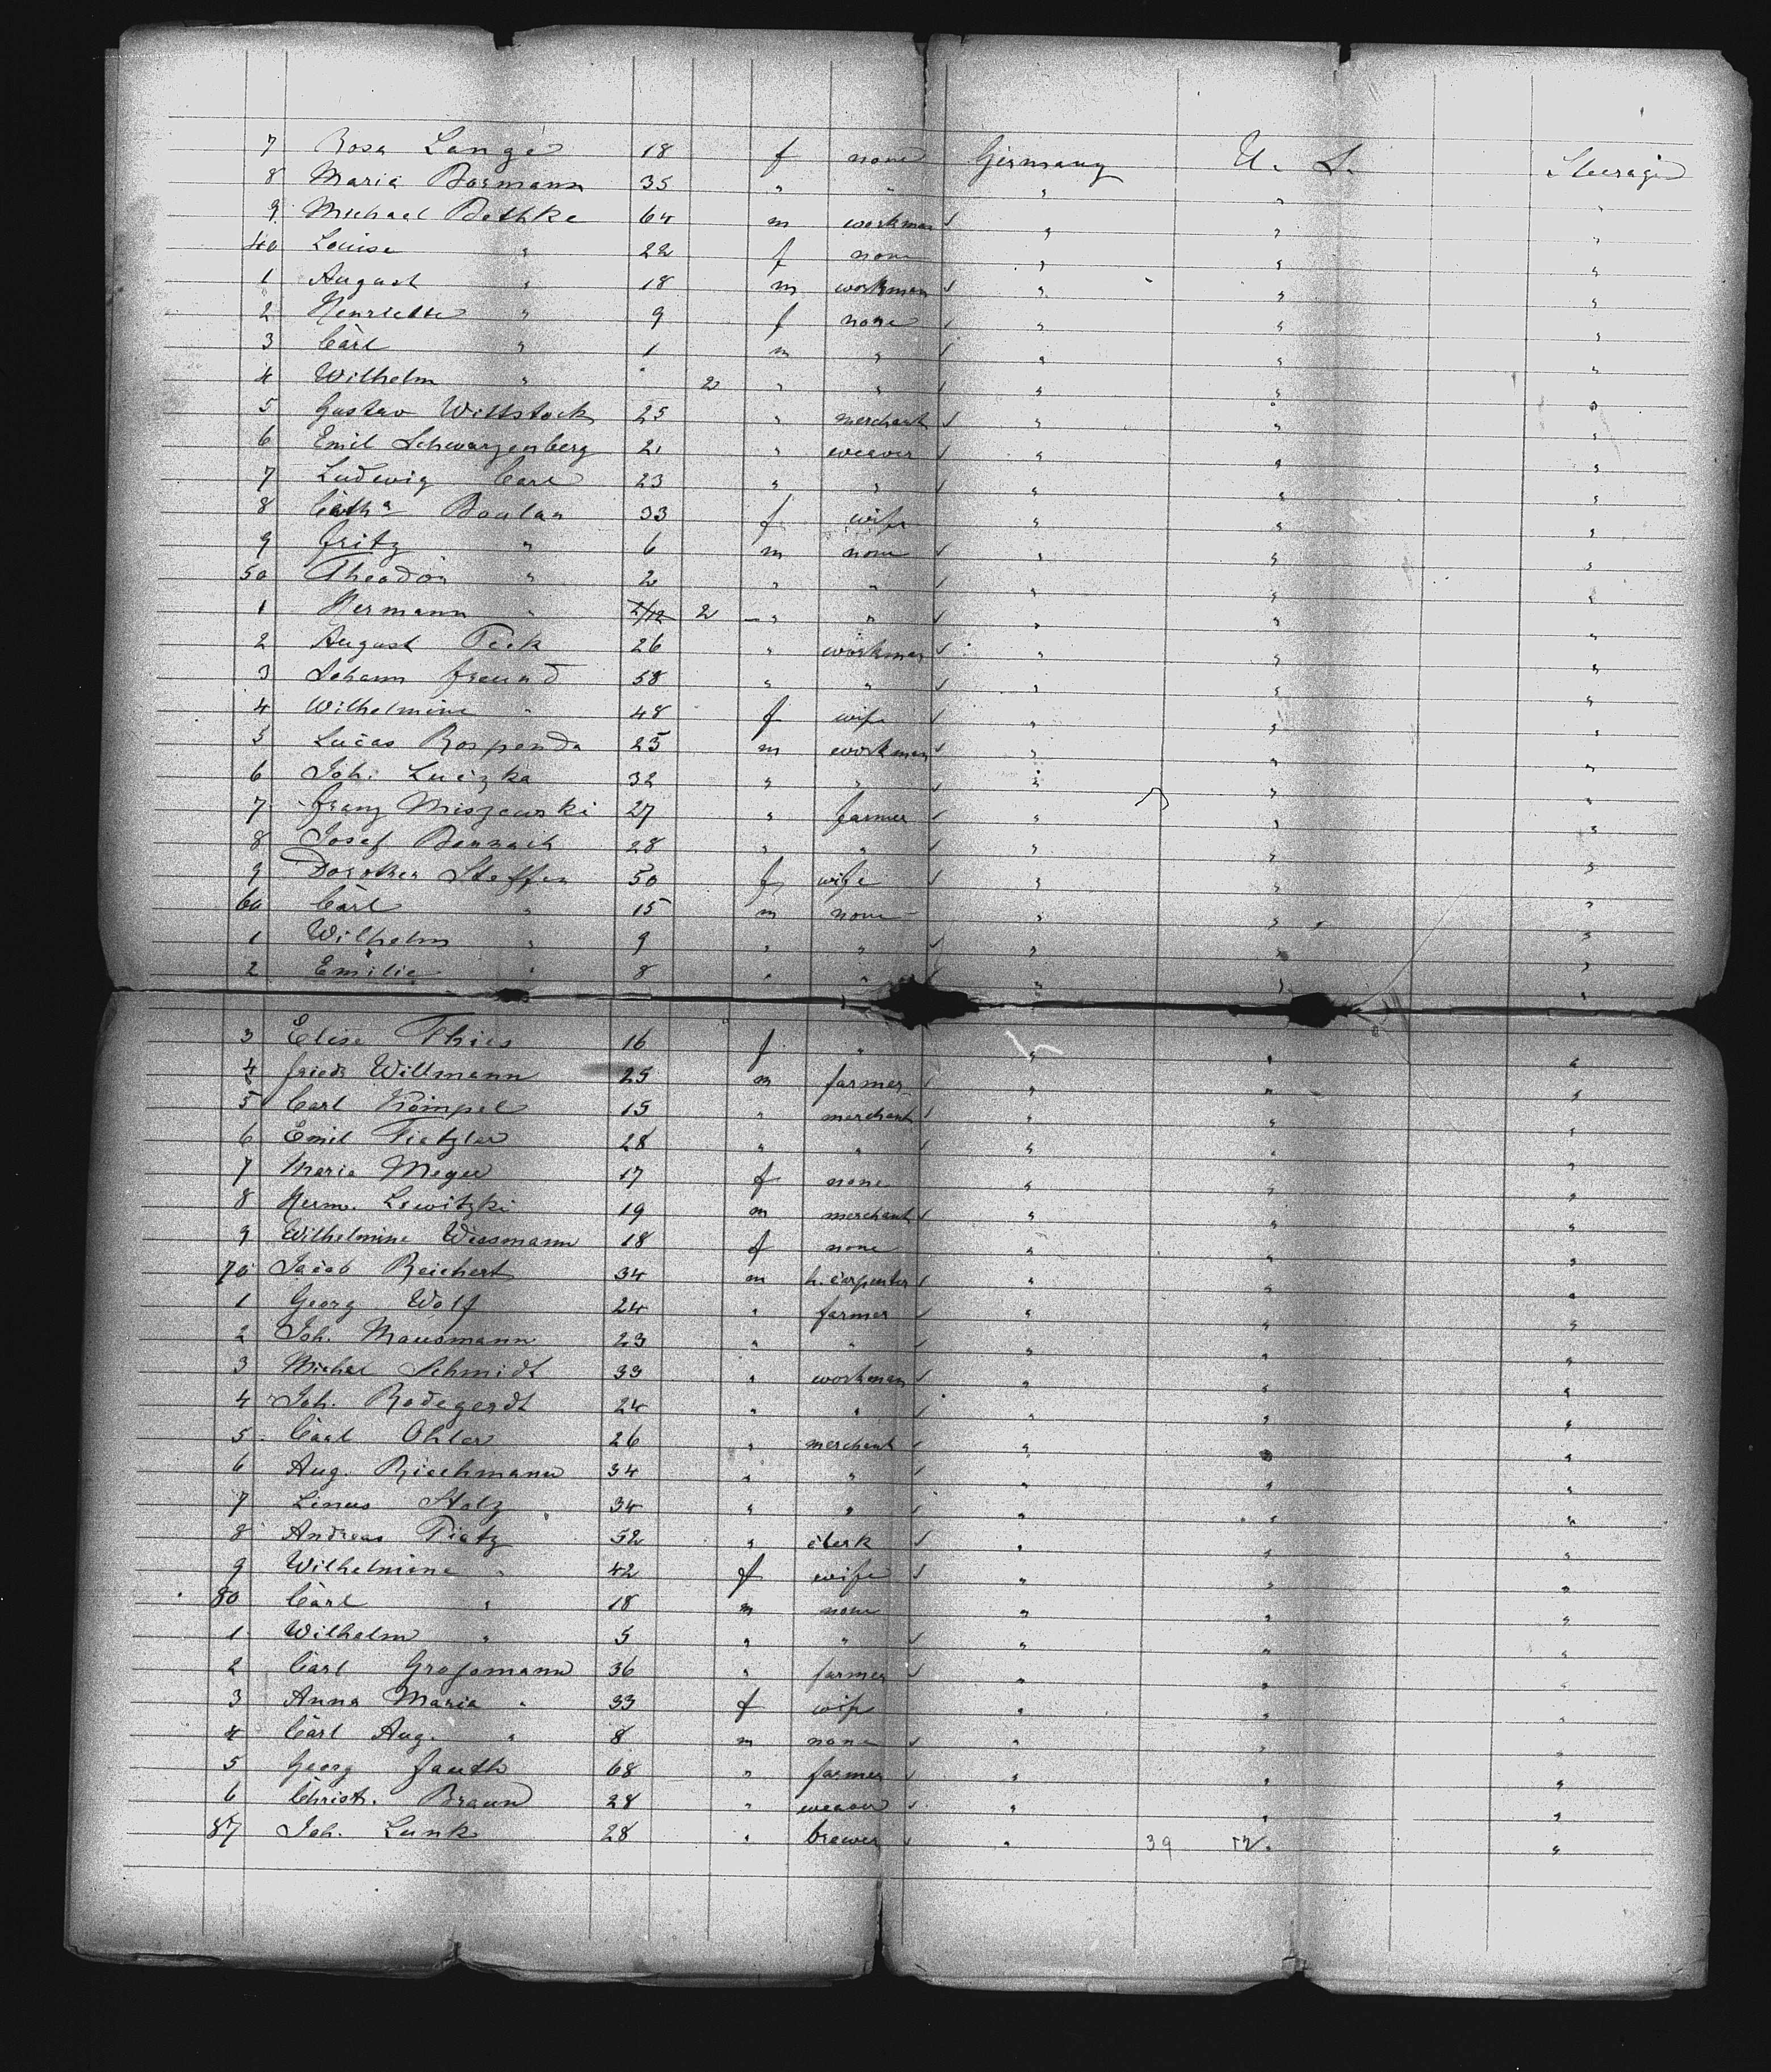 7 Rosa Lange 18 f none Germany U. S. Steerage
8 Maria Bormann 35 " " " " "
9 Michael Bethke 64 m workman " " "
40 Louise " 22 f none " " "
1 August " 18 m workman " " "
2 Henriette " 9 f none " " "
3 Carl " 1 m " " " "
4 Wilhelm " 2 " " " " "
5 Gustav Wittstock 25 " merchant " " "
6 Emil Schwarzenberg 21 " weaver " " "
7 Ludwig Carl 23 " " " " "
8 Cath^a 33 f wife " " "
9 Fritz " 6 m none " " "
50 Theodor " 2 " " " " "
1 Hermann " 2/12 2 " " " " "
2 August 26 " workman " " "
3 Johann Freund 58 " " " " "
4 Wilhelmine " 48 f wife " " "
5 Lucas Rospenda 25 m workman " " "
6 Joh. Luczka 32 " " " " "
7 Franz Miszewski 27 " farmer " " "
8 Josef 28 " " " " "
9 Dorothea Steffen 50 f wife " " "
60 Carl " 15 m none " " "
1 Wilhelm " 9 " " " " "
2 Emilie " 8 " " " " "
3 Elise Thies 16 f " " " "
4 Friedr Willmann 25 m farmer " " "
5 Carl Kömpel 15 " merchant " " "
6 Emil 28 " " " " "
7 Maria Meyer 17 f none " " "
8 Herm. Lewitzki 19 m merchant " " "
9 Wilhelmine Wiesmann 18 f none " " "
70 Jacob Reichert 34 m h. carpenter " " "
1 Georg Wolf 24 " farmer " " "
2 Joh. Mausmann 23 " " " " "
3 Michel Schmidt 33 " workman " " "
4 Joh. Radegerdt 24 " " " " "
5 Carl Ohler 26 " merchant " " "
6 Aug. Riechmann 34 " " " " "
7 Linus Stolz 34 " " " " "
8 Andreas Tietz 52 " clerk " " "
9 Wilhelmine " 42 f wife " " "
80 Carl " 18 m none " " "
1 Wilhelm " 5 " " " " "
2 Carl Grossmann 36 " farmer " " "
3 Anna Maria " 33 f wife " " "
4 Carl Aug. " 8 m none " " "
5 Georg Fauth 68 " farmer " " "
6 Christ. Braun 28 " weaver " " "
87 Joh. Lunk 28 " brewer " 39 " "